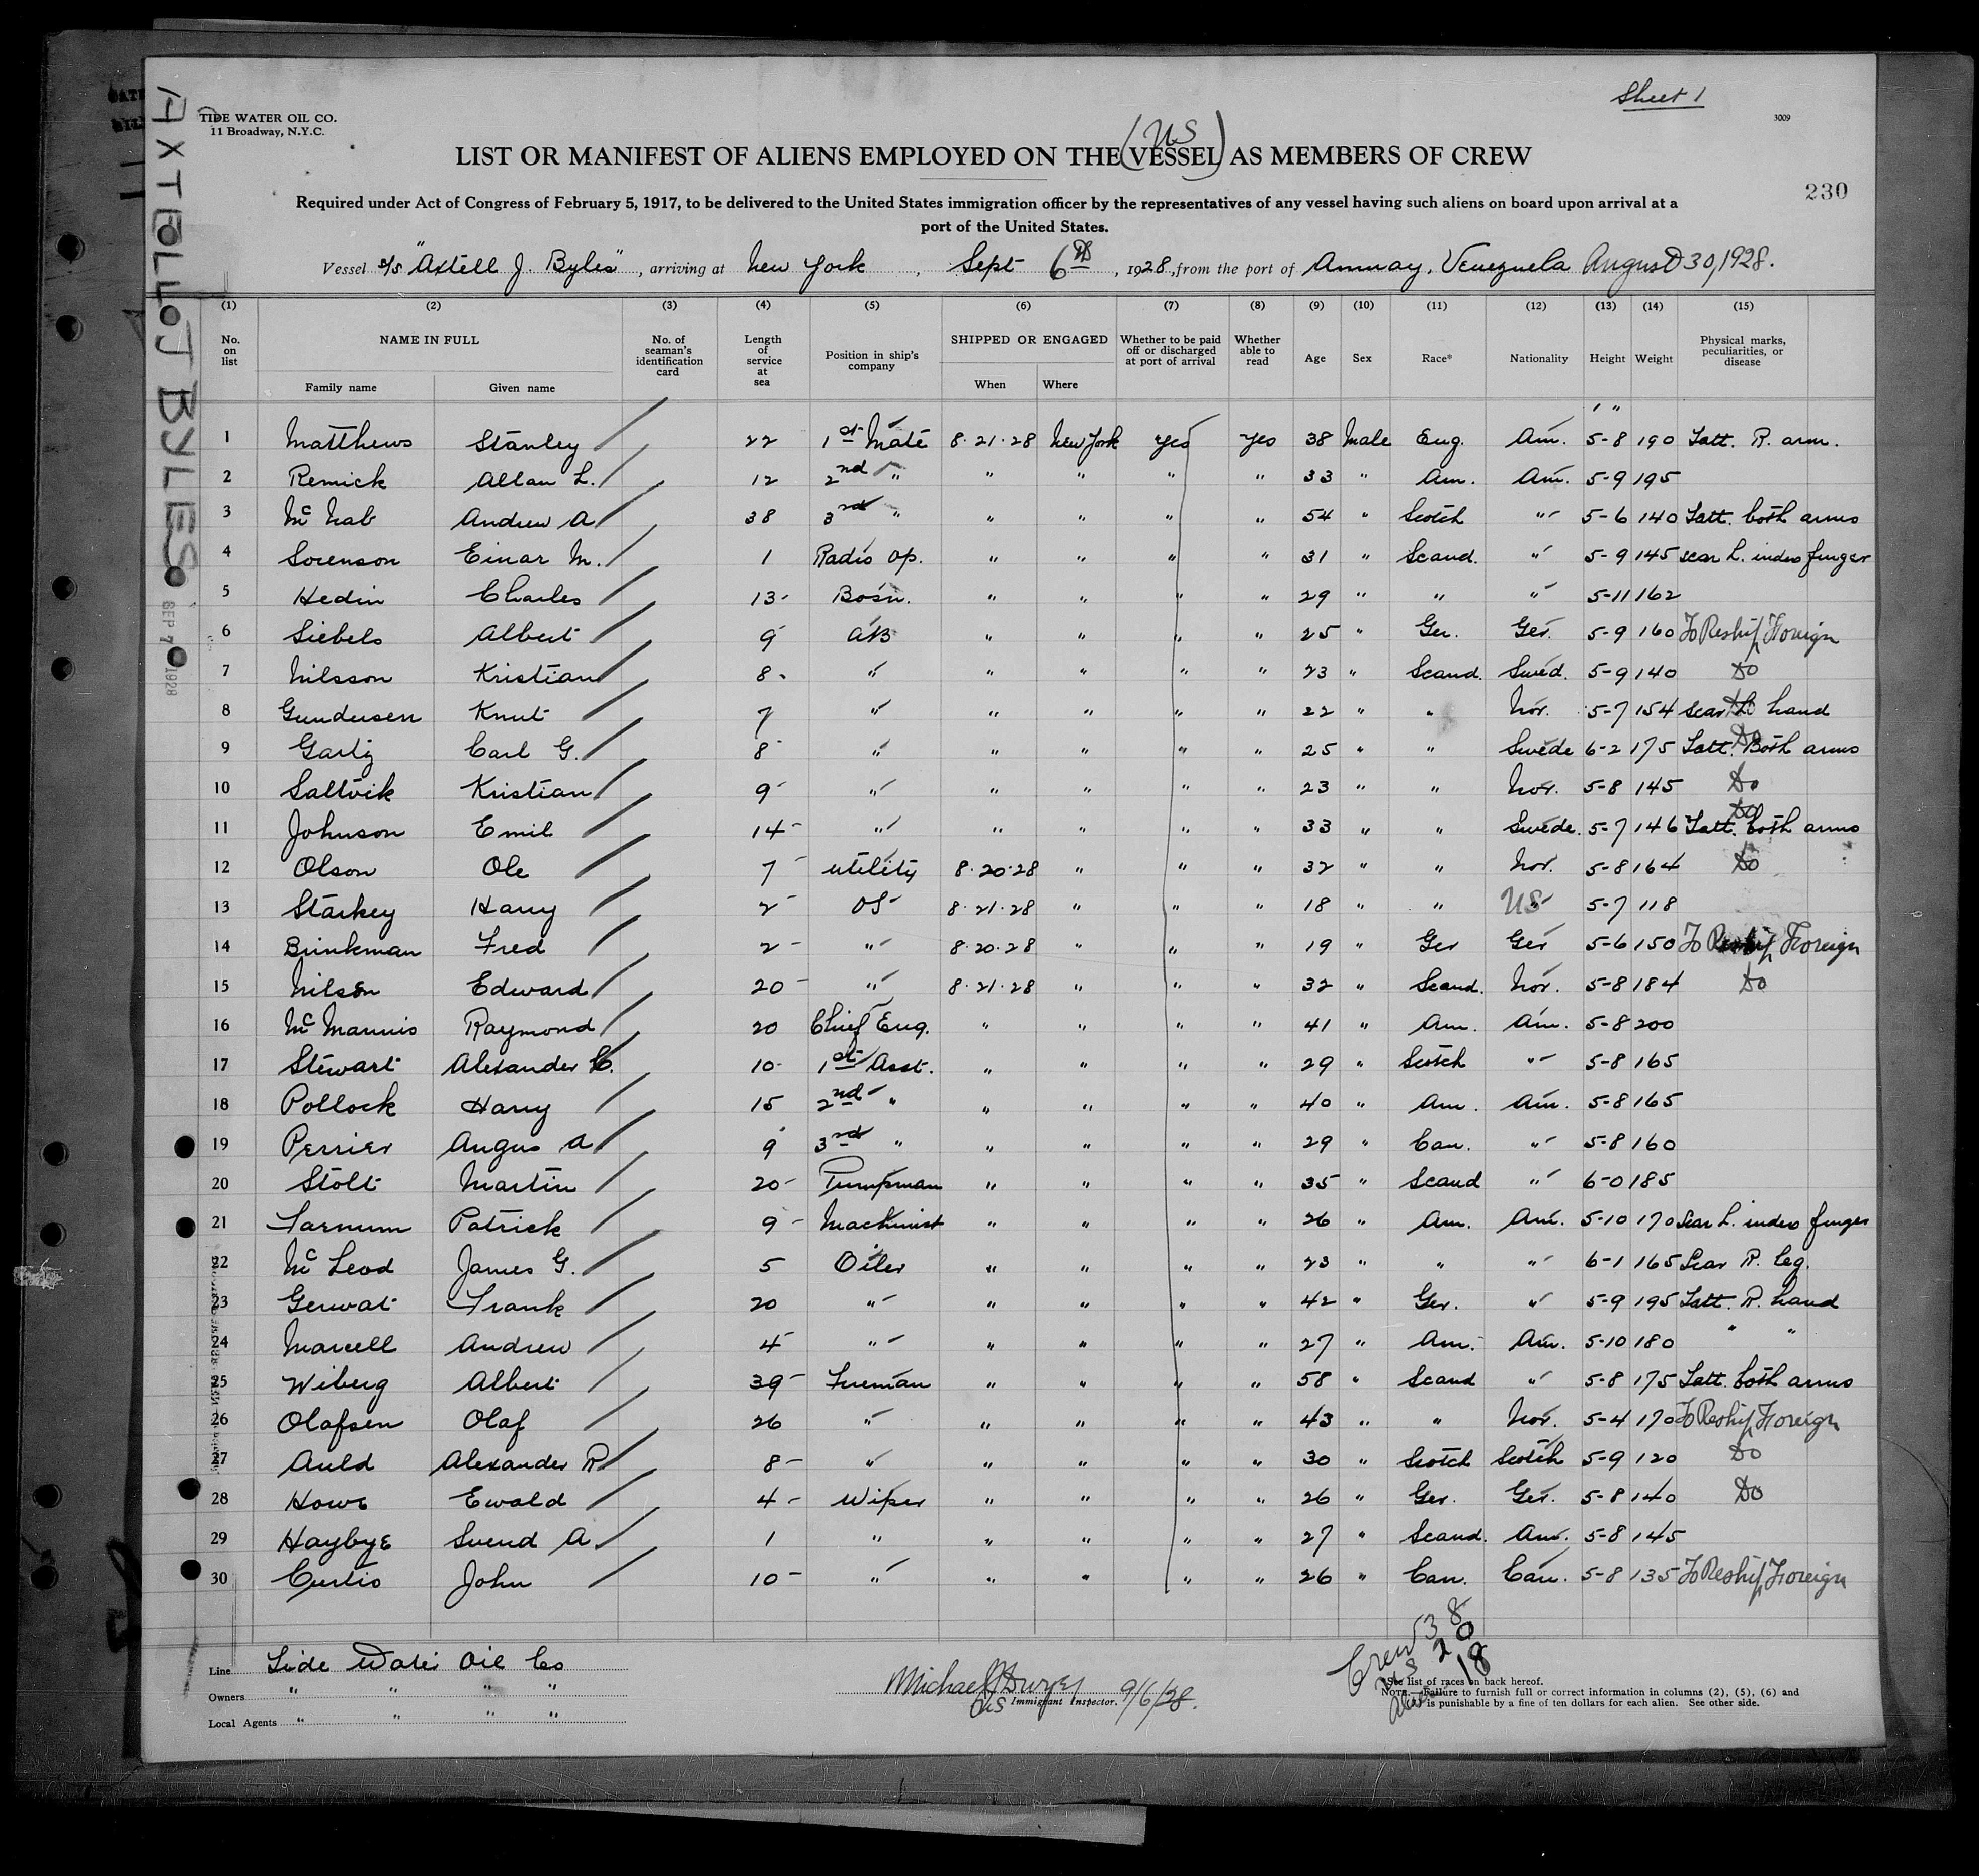 Sheet 1
TIDE WATER OIL CO.
11 Broadway, N.Y.C.
3009
(US)
LIST OR MANIFEST OF ALIENS EMPLOYED ON THE VESSEL AS MEMBERS OF CREW
230
Required under Act of Congress of February 5, 1917, to be delivered to the United States immigration officer by the representatives of any vessel having such aliens on board upon arrival at a
port of the United States.
Vessel S/S "Axtell J. Byles", arriving at New York, Sept 6th, 1928, from the port of Amuay, Venezuela August 30, 1928.
AXTELL J BYLES
SEP 7 1928
(1) (2) (3) (4) (5) (6) (7) (8) (9) (10) (11) (12) (13) (14) (15)
No. on list NAME IN FULL Family name Given name No. of seaman's identification card Length of service at sea Position in ship's company SHIPPED OR ENGAGED When Where Whether to be paid off or discharged at port of arrival Whether able to read Age Sex Race* Nationality Height Weight Physical marks, peculiarities, or disease
' "
1 Matthews Stanley 22 1st Mate 8-21-28 New York Yes Yes 38 Male Eng. Am. 5-8 190 Tatt. R. arm.
2 Remick Allan L. 12 2nd " " " " " 33 " Am. Am. 5-9 195
3 McNab Andrew A 38 3rd " " " " " 54 " Scotch " 5-6 140 Tatt. both arms
4 Sorenson Einar M. 1 Radio Op. " " " " 31 " Scand. " 5-9 145 scar L. index finger
5 Hedin Charles 13 Bosn. " " " " 29 " " " 5-11 162
6 Siebels Albert 9 AB " " " " 25 " Ger. Ger. 5-9 160 To Reship Foreign
7 Nilsson Kristian 8 " " " " " 23 " Scand. Swed. 5-9 140 Do
8 Gundersen Knut 7 " " " " " 22 " " Nor. 5-7 154 Scar L hand Do
9 Garlz Carl G. 8 " " " " " 25 " " Swede 6-2 175 Tatt. Both arms Do
10 Saltvik Kristian 9 " " " " " 23 " " Nor. 5-8 145 Do
11 Johnson Emil 14 " " " " " 33 " " Swede. 5-7 146 Tatt. both arms Do
12 Olson Ole 7 utility 8-20-28 " " " 32 " " Nor. 5-8 164 Do
13 Starkey Harry 2 OS 8-21-28 " " " 18 " " US 5-7 118
14 Brinkman Fred 2 " 8-20-28 " " " 19 " Ger Ger 5-6 150 To Reship Foreign
15 Nilsen Edward 20 " 8-21-28 " " " 32 " Scand. Nor. 5-8 184 Do
16 McMannis Raymond 20 Chief Eng. " " " " 41 " Am. Am. 5-8 200
17 Stewart Alexander C. 10 1st Asst. " " " " 29 " Scotch " 5-8 165
18 Pollock Harry 15 2nd " " " " " 40 " Am. Am. 5-8 165
19 Perrier Angus A 9 3rd " " " " " 29 " Can. " 5-8 160
20 Stolt Martin 20 Pumpman " " " " 35 " Scand " 6-0 185
21 Farnum Patrick 9 Machinist " " " " 26 " Am. Am. 5-10 170 Scar L. index finger
22 McLeod James G. 5 Oiler " " " " 23 " " " 6-1 165 Scar R. leg.
23 Gerwat Frank 20 " " " " " 42 " Ger. " 5-9 195 Tatt. R. hand
24 Marcell Andrew 4 " " " " " 27 " Am. Am. 5-10 180 " "
25 Wiberg Albert 39 Fireman " " " " 58 " Scand " 5-8 175 Tatt. both arms
26 Olafsen Olaf 26 " " " " " 43 " " Nor. 5-4 170 To Reship Foreign
27 Auld Alexander R 8 " " " " " 30 " Scotch Scotch 5-9 120 Do
28 Howe Ewald 4 Wiper " " " " 26 " Ger. Ger. 5-8 140 Do
29 Haybye Svend A. 1 " " " " " 27 " Scand. Am. 5-8 145
30 Curtis John 10 " " " " " 26 " Can. Can. 5-8 135 To Reship Foreign
Crew 38
US 20
Aliens 18
Line Tide Water Oil Co
Owners " " " "
Local Agents " " " "
Michael J Dwyer
US Immigrant Inspector. 9/6/28.
*See list of races on back hereof.
NOTE.—Failure to furnish full or correct information in columns (2), (5), (6) and
is punishable by a fine of ten dollars for each alien. See other side.